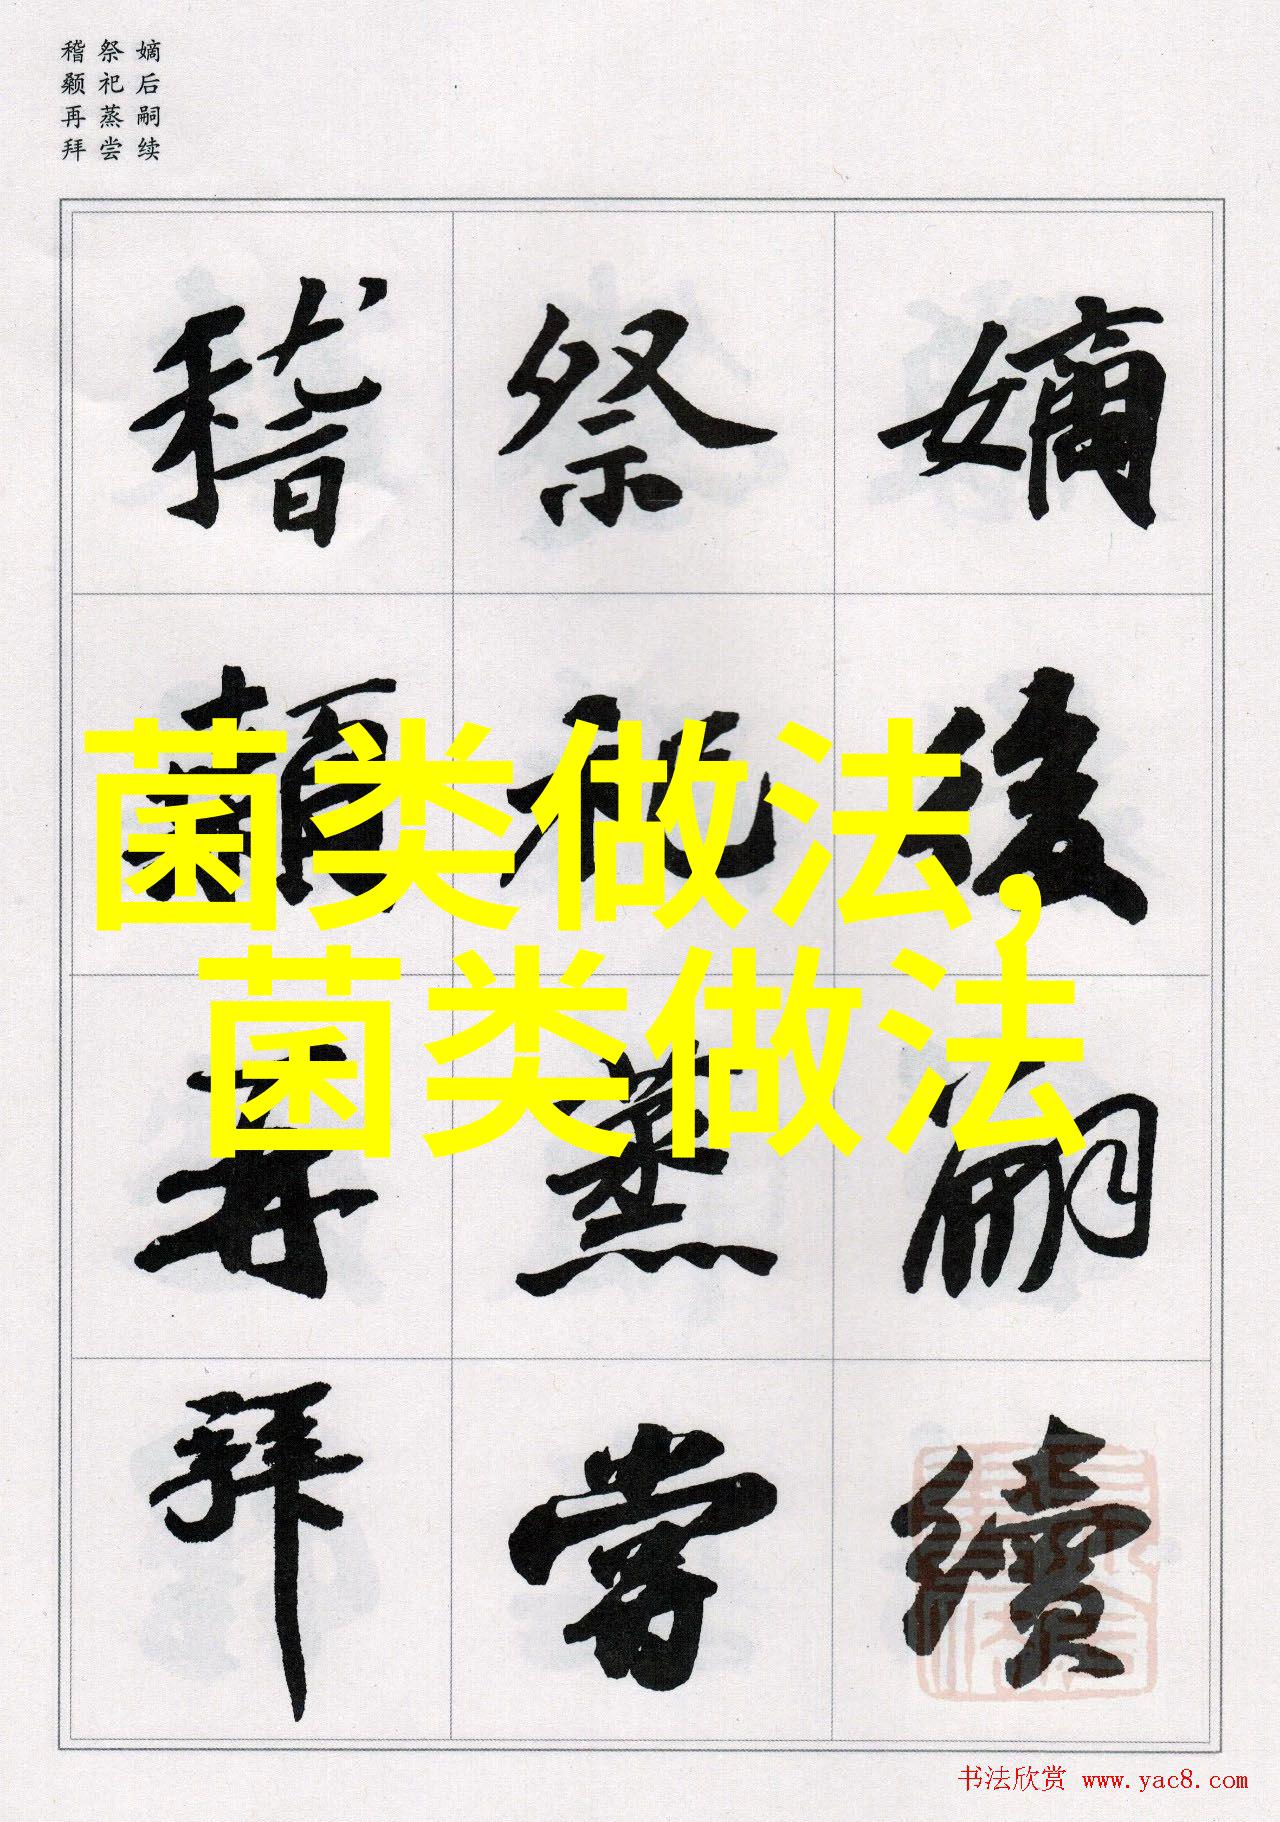 嫡后嗣续
祭祀蒸尝
稽颡再拜
嫡後嗣續
祭祀蒸嘗
稽顙再拜
菌类做法,
菌类做法
书法欣赏 www.yac8.com